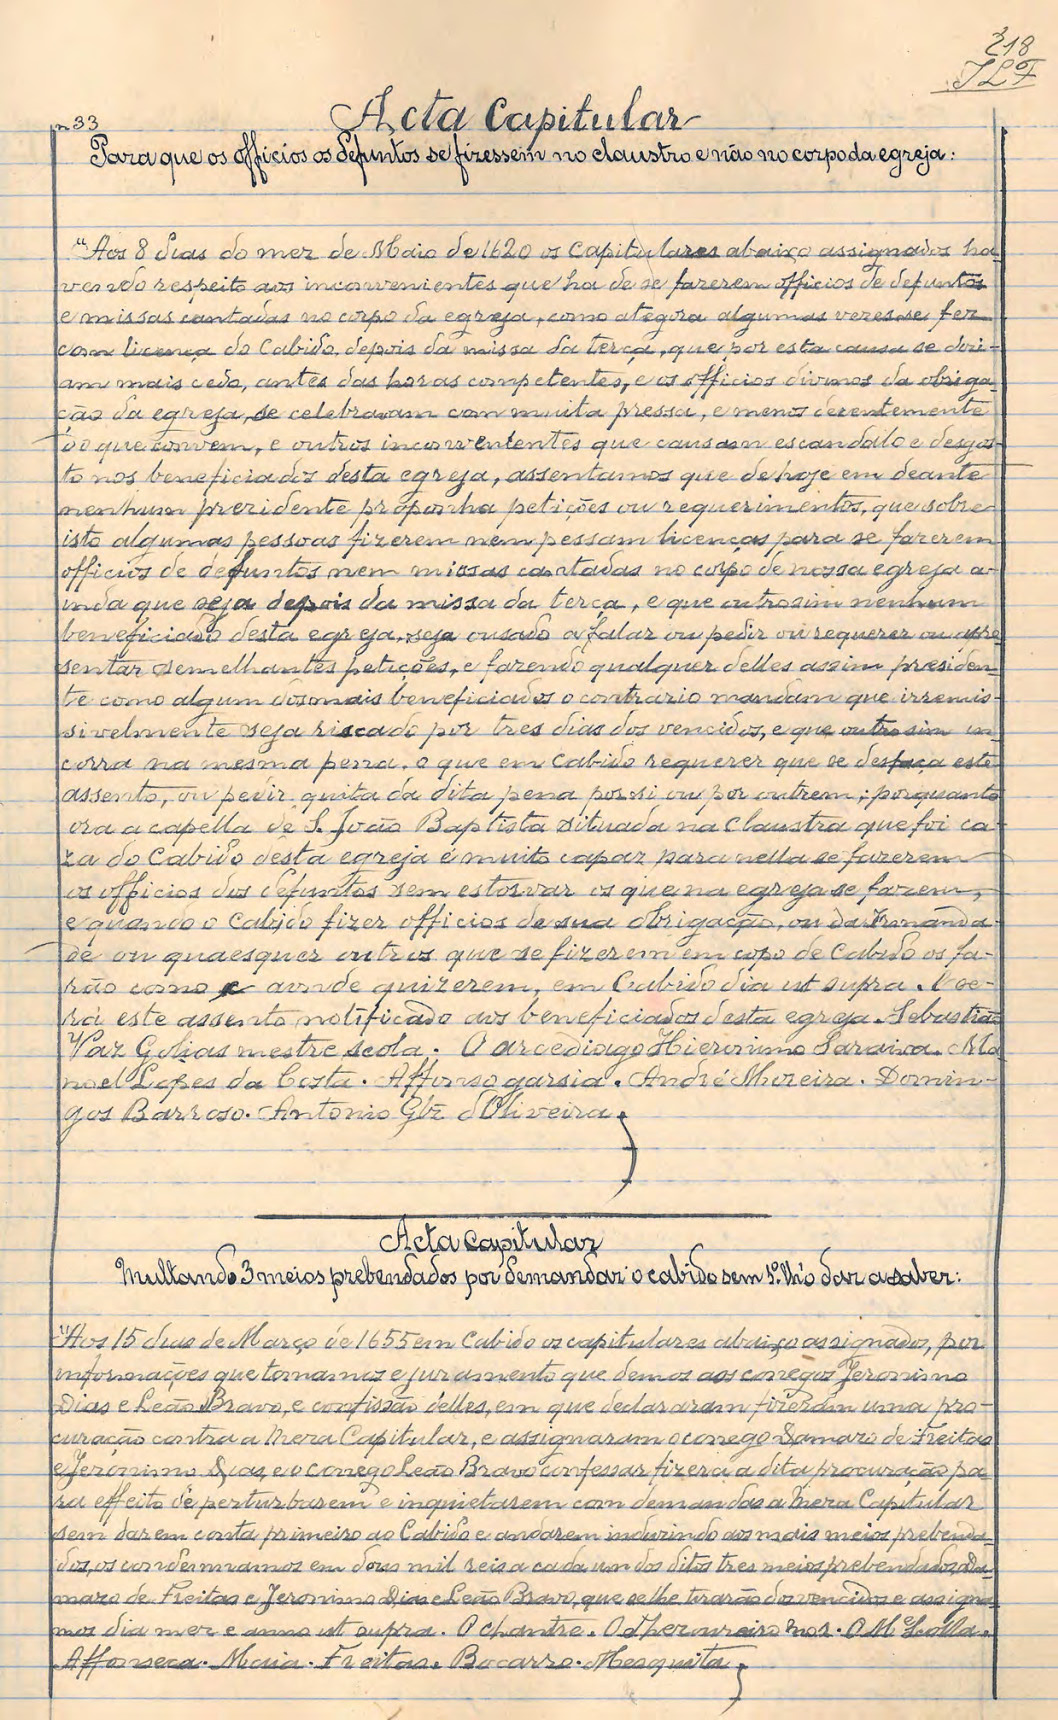 218
JLF
nº 33
Acta Capitular
Para que os officios os defuntos se fizessem no claustro e não no corpo da egreja:
"Aos 8 dias do mez de Maio de 1620 os Capitulares abaixo assignados ha-
vendo respeito aos inconvenientes que ha de se fazerem officios de defuntos
e missas cantadas no corpo da egreja, como atégora algumas vezes se fez
com licença do Cabido, depois da missa da terça, que por esta causa se dezi-
am mais cedo, antes das horas competentes, e os officios divinos da obriga-
ção da egreja, se celebravam com muita pressa, e menos decentemente
do que convem, e outros inconvenientes que causam escandalo e desgos-
to nos beneficiados desta egreja, assentamos que de hoje em deante
nenhum prezidente proponha petições ou requerimentos, que sobre
isto algumas pessoas fizerem nem pessam licenças para se fazerem
officios de defuntos nem missas cantadas no corpo de nossa egreja a-
inda que seja depois da missa da terça, e que outrosim nenhum
beneficiado desta egreja, seja ousado a falar ou pedir ou requerer ou apre
sentar semelhantes petições, e fazendo qualquer delles assim presiden-
te como algum dos mais beneficiados o contrario mandam que irremis-
sivelmente seja riscado por tres dias dos vencidos, e que outrosim in-
corra na mesma pena, o que em Cabido requerer que se desfaça este
assento, ou pedir quita da dita pena por si ou por outrem; porquanto
ora a capella de S. João Baptista situada na Claustra que foi ca-
za do Cabido désta egreja é muito capaz para nella se fazerem
os officios dos defuntos sem estorvar os que na egreja se fazem,
e quando o Cabido fizer officios de sua obrigação, ou da Irmanda-
de ou quaesquer outros que se fizerem em copo de Cabido os fa-
rão como e aonde quizerem, em Cabido dia ut supra. E se-
rá este assento notificado aos beneficiados desta egreja. Sebastião
Vaz Golias mestre scola. O arcediago Hieronimo Saraiva. Ma
noel Lopes da Costa. Affonso garsia. André Moreira. Domin-
gos Barroso. Antonio Glz d'Oliveira.
Acta Capitular
Multando 3 meios prebendados por demandar o cabido sem 1º lh'o dar a saber:
"Aos 15 dias de Março de 1655 em Cabido os capitulares abaixo assignados, por
informações que tomamos e juramento que demos aos conegos Jeronimo
Dias e Leão Bravo, e confissão d'elles, em que declararam fizeram uma pro-
curação contra a Meza Capitular, e assignaram o conego Damazo de Freitas
e Jeronimo Dias, e o conego Leão Bravo confessar fizera a dita procuração pa-
ra effeito de perturbarem e inquietarem com demandas a Meza Capitular
sem darem conta primeiro ao Cabido e andarem induzindo aos mais meios prebenda-
dos, os condemnamos em dous mil reis a cada um dos ditos tres meios prebendados, Da-
mazo de Freitas e Jeronimo Dias e Leão Bravo, que se lhe tirarão dos vencidos e assigna-
mos dia mez e anno ut supra. O chantre. O Thezoureiro mor. O M Scolla.
Affonseca. Maia. Freitas. Bocarro. Mesquita.